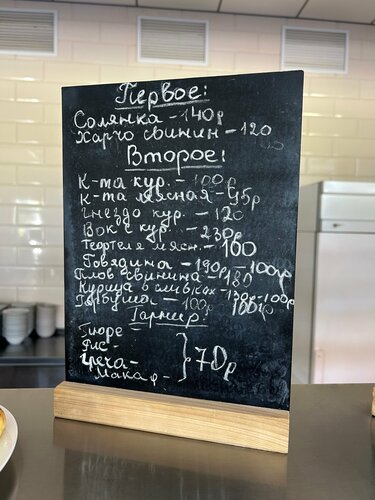 Первое:
Солянка - 140р
Харчо свинин - 120
Второе:
К-та кур. - 100р
К-та мясная - 95р
Гнездо кур. - 120
Вок с кур. - 230р
Тефтеля мясн. - 100
Говядина - 190р - 100гр
Плов свинина - 180
Курица в сливках - 130р - 100гр
Горбуша - 100р 100гр
Гарнир:
Пюре
Рис -
Греча -
Макар - } 70р